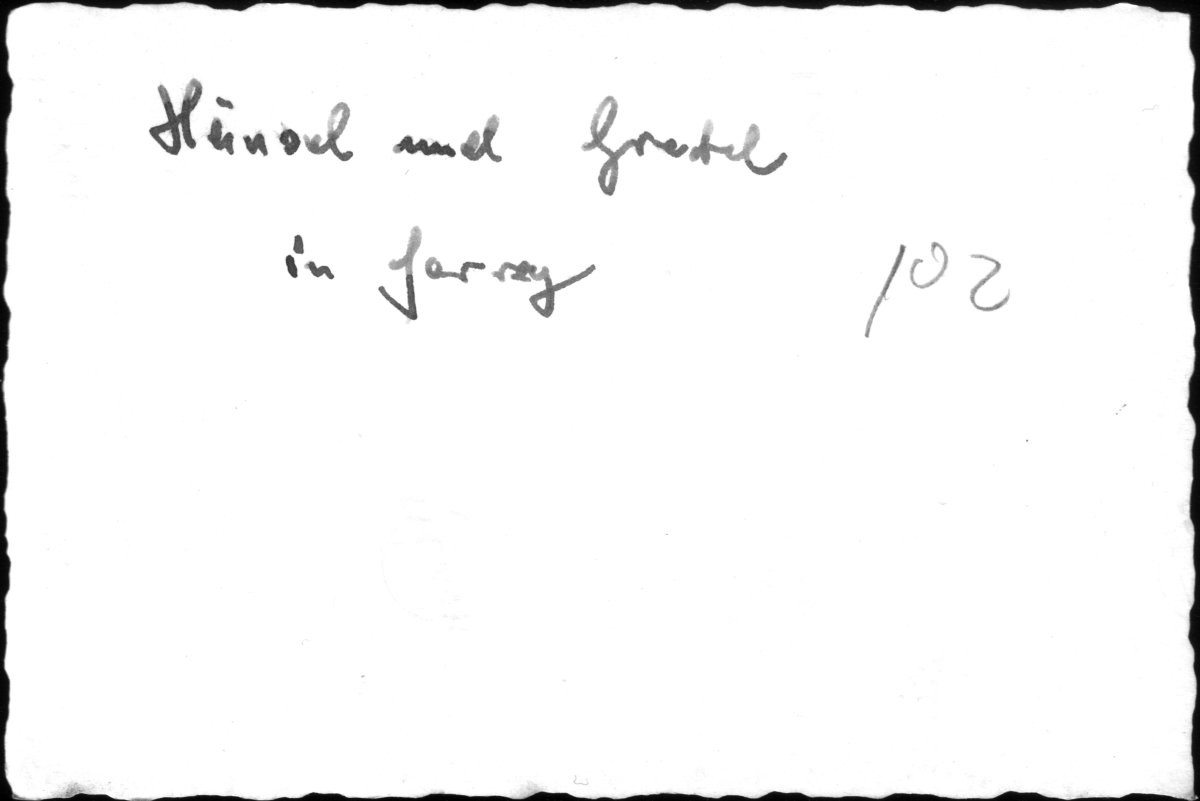 Hänsel und Gretel
in Jarrey 102